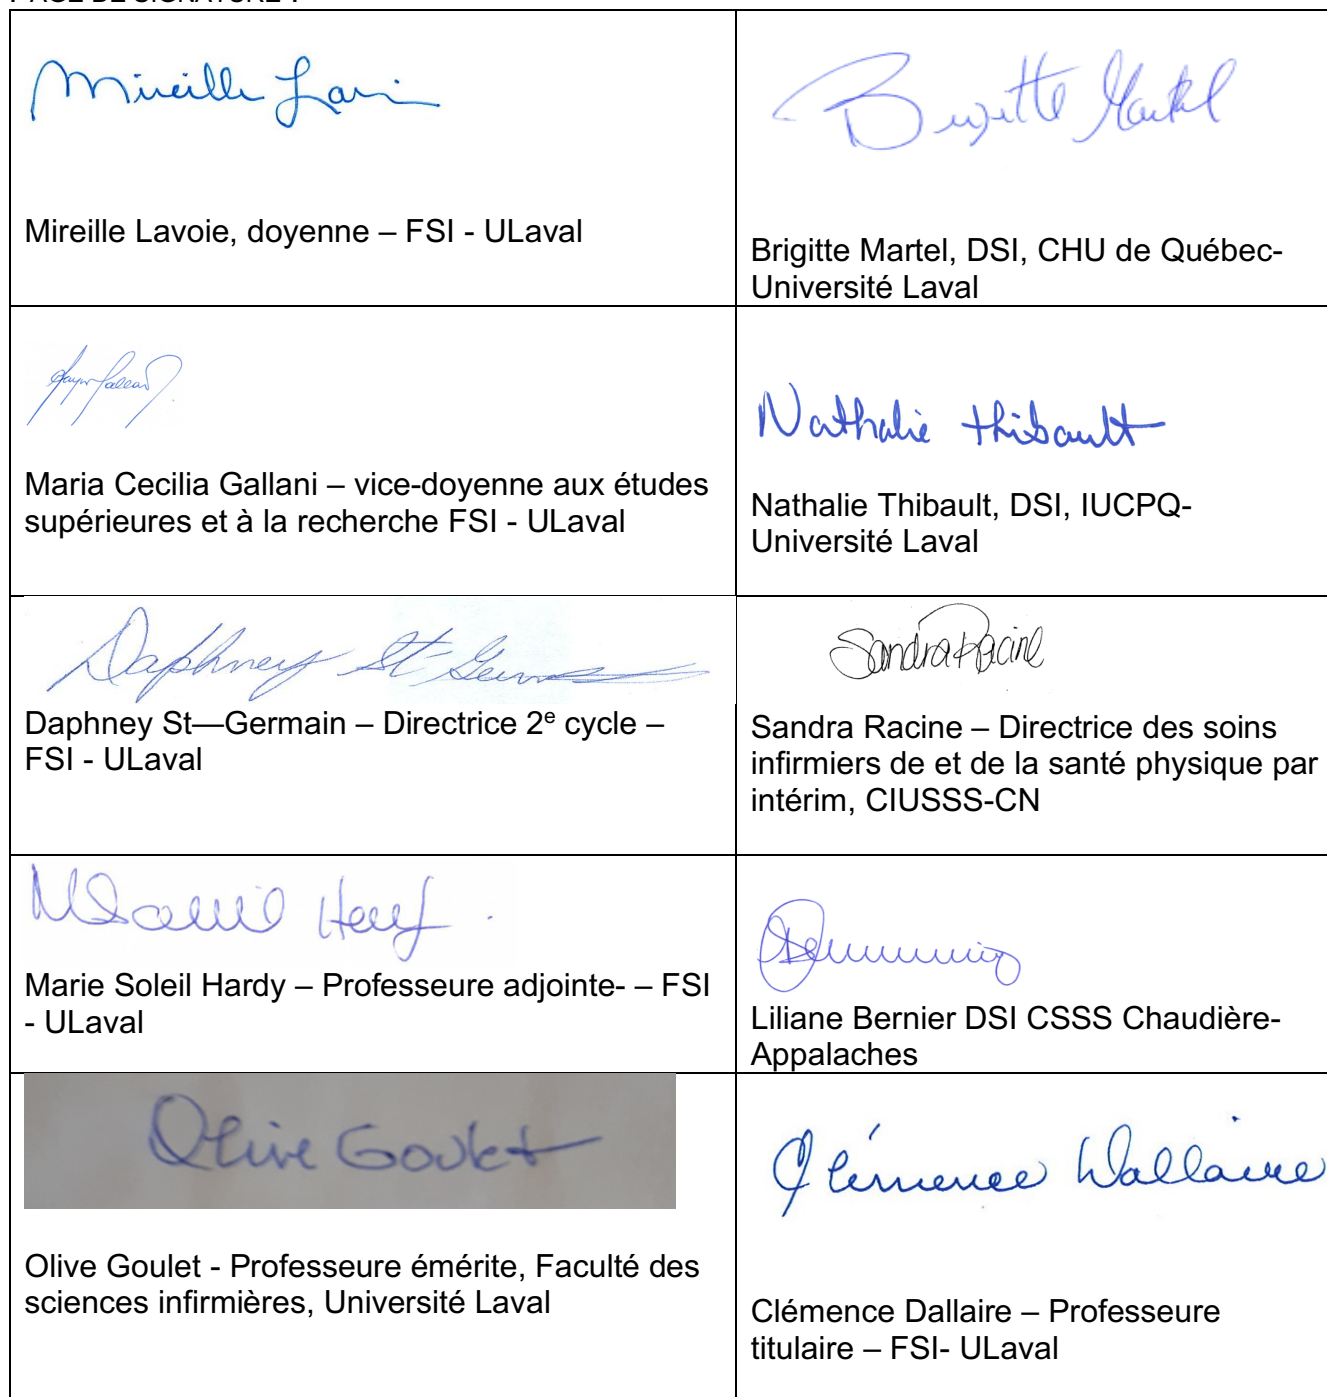 PAGE DE SIGNATURE :
Mireille Lavoie
Mireille Lavoie, doyenne – FSI - ULaval
Brigitte Martel
Brigitte Martel, DSI, CHU de Québec-
Université Laval
Maria Cecilia Gallani – vice-doyenne aux études
supérieures et à la recherche FSI - ULaval
Nathalie Thibault
Nathalie Thibault, DSI, IUCPQ-
Université Laval
Daphney St-Germain
Daphney St—Germain – Directrice 2e cycle –
FSI - ULaval
Sandra Racine
Sandra Racine – Directrice des soins
infirmiers de et de la santé physique par
intérim, CIUSSS-CN
Marie Soleil Hardy – Professeure adjointe- – FSI
- ULaval
Liliane Bernier DSI CSSS Chaudière-
Appalaches
Olive Goulet
Olive Goulet - Professeure émérite, Faculté des
sciences infirmières, Université Laval
Clémence Dallaire
Clémence Dallaire – Professeure
titulaire – FSI- ULaval